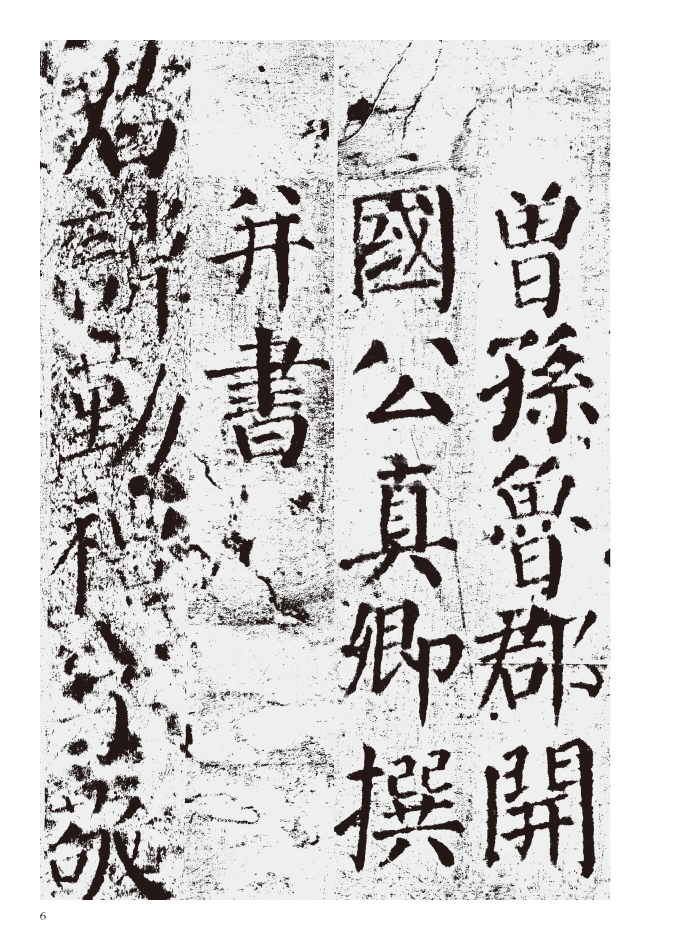 曾孫魯郡開
國公真卿撰
并書
君諱勤禮字敬
6